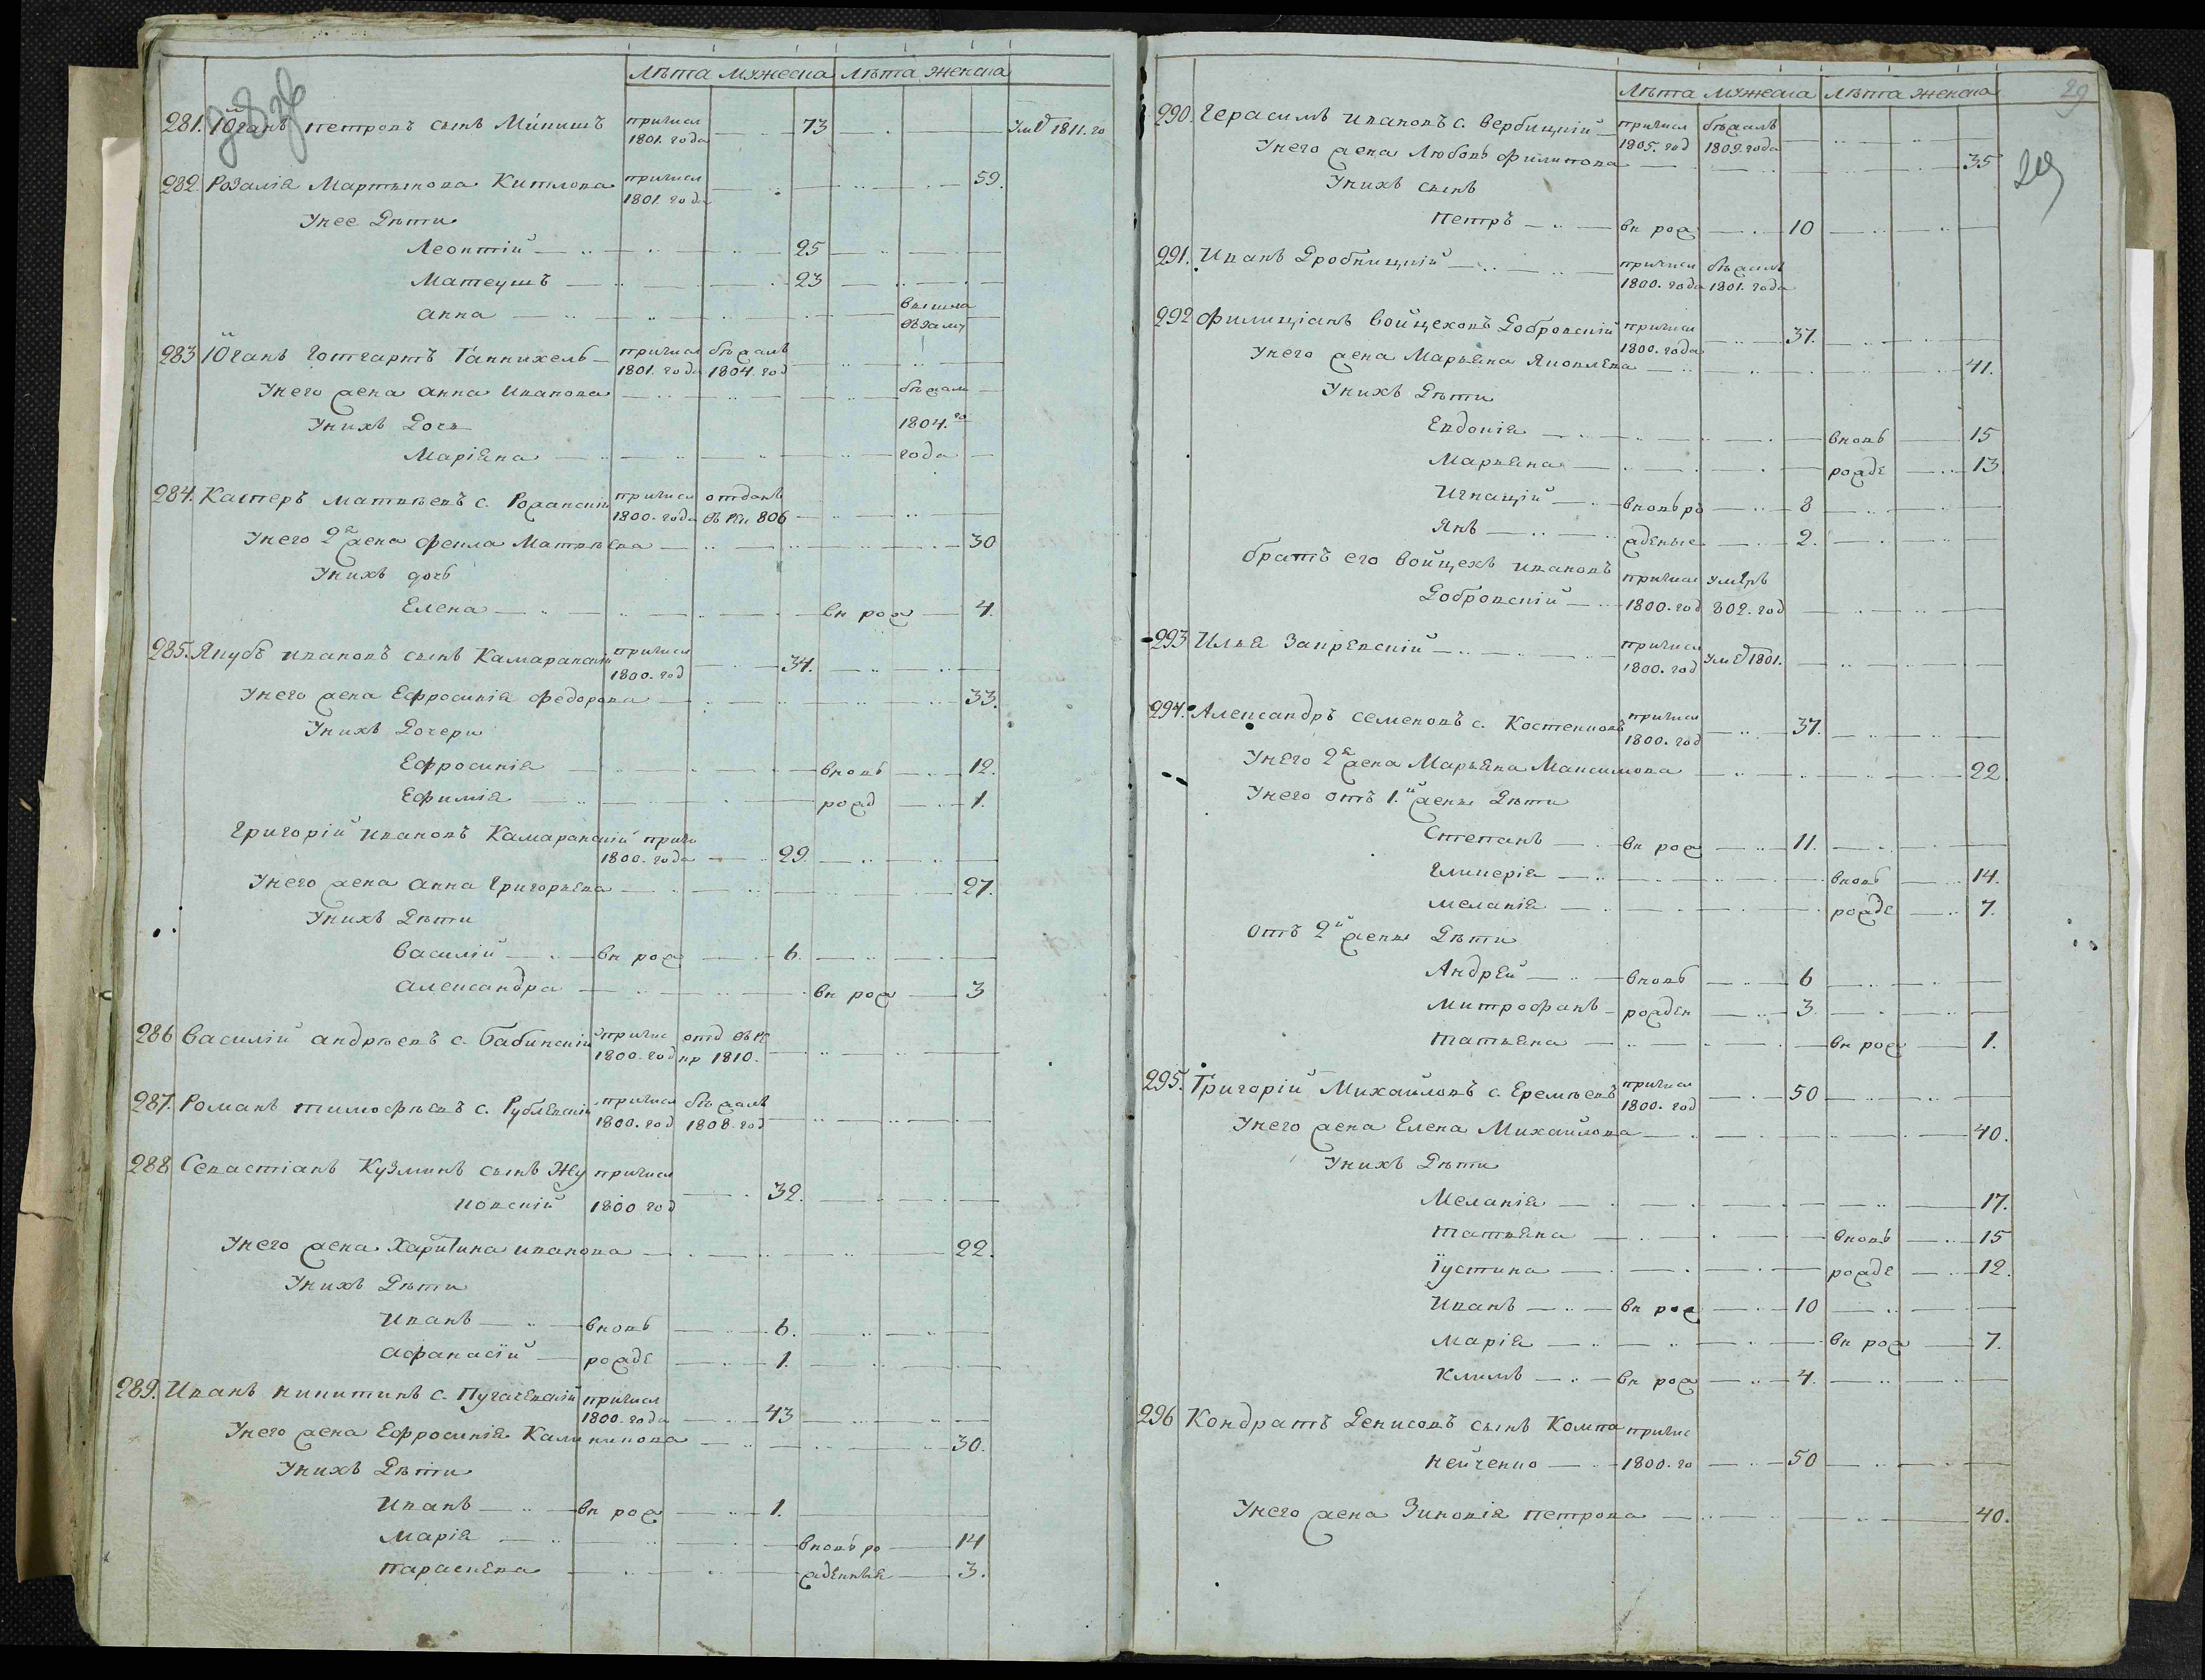 Лѣта мужеска Лѣта женска
281. Юганъ петровъ сынъ причисл 73 Умѣ 1811. го
1801. года
282. Розалія Мартынова Китлова причисл 59.
1801. года
Унее Дѣти
Леонтій 25
Матеушъ 23
анна вышла
въ замуж
283 Юганъ Готгартъ причисл бѣжалъ
1801. года 1804. год
Унего жена анна иванова бѣжали
Унихъ Дочь 1804.го
Маріяна года
284. Касперъ матвѣевъ с. Рожанскій причисл отданъ
1800. года въ рек 806
Унего 2я жена фекла Матвѣева 30
Унихъ дочь
Елена вн рож 4.
285. Якубъ ивановъ сынъ Камаранскій причисл 34.
1800. год
Унего жена Ефросинія федорова 33.
Унихъ Дочери
Ефросинія вновь 12.
Ефимія рожд 1.
григорій ивановъ Камаранскій причи
1800. года 29.
Унего жена анна григорьева 27.
Унихъ Дѣти
василій вн рож 6.
александра вн рож 3
286 василій андрѣевъ с. бабинскій причис отд въ ре
1800. год кр 1810.
287. Романъ тимофѣевъ с. Рублевскій причисл бѣжалъ
1800. год 1808. год
288 Севастіанъ Кузминъ сынъ Жу причисл 32.
ковскій 1800 год
Унего жена Харитина иванова 22.
Унихъ Дѣти
иванъ вновь 6.
афанасій рожде 1.
289. Иванъ никитинъ с. Пугачевскій причисл
1800. года 43
Унего жена Ефросинія Калиникова 30.
Унихъ Дѣти
иванъ вн рож 1.
марія вновь ро 14
параскева жденныя 3.
29
29
Лѣта мужеска Лѣта женска
290. герасимъ ивановъ с. вербицкій причисл бѣжалъ
1805. год 1809. года
Унего жена Любовь филипова 35
Унихъ сынъ
петръ вн рож 10
291. Иванъ Дробницкій причисл бѣжалъ
1800. года 1801. года
292 филиціанъ войцеховъ Добровскій причисл 37.
1800. года
Унего жена Марьяна Яковлева 41.
Унихъ Дѣти
Евдокія вновь 15
Марьяна рожде 13
игнацій вновь ро 8
Янъ жденые 2.
братъ его войцехъ ивановъ причисл умеръ
Добровскій 1800. год 802. год
293 Илья Закревскій причисл
1800. год умѣ 1801.
294. Александръ семеновъ с. Костенковъ причисл 37.
1800. год
Унего 2я жена Марьяна Максимова 22
Унего отъ 1.й жены Дѣти
Степанъ вн рож 11.
гликерія вновь 14.
меланія рожде 7.
отъ 2й жены Дѣти
Андрей вновь 6
митрофанъ рожден 3.
татьяна вн рож 1.
295. Григорій Михайловъ с. Еремѣевъ причисл 50
1800. год
Унего жена Елена Михайлова 40.
Унихъ Дѣти
Меланія 17.
татьяна вновь 15
їустина рожде 12.
иванъ вн рож 10
марія вн рож 7.
климъ вн рож 4.
296 Кондратъ Денисовъ сынъ Компа причис
нейченко 1800. го 50
Унего жена Зиновія петрова 40.